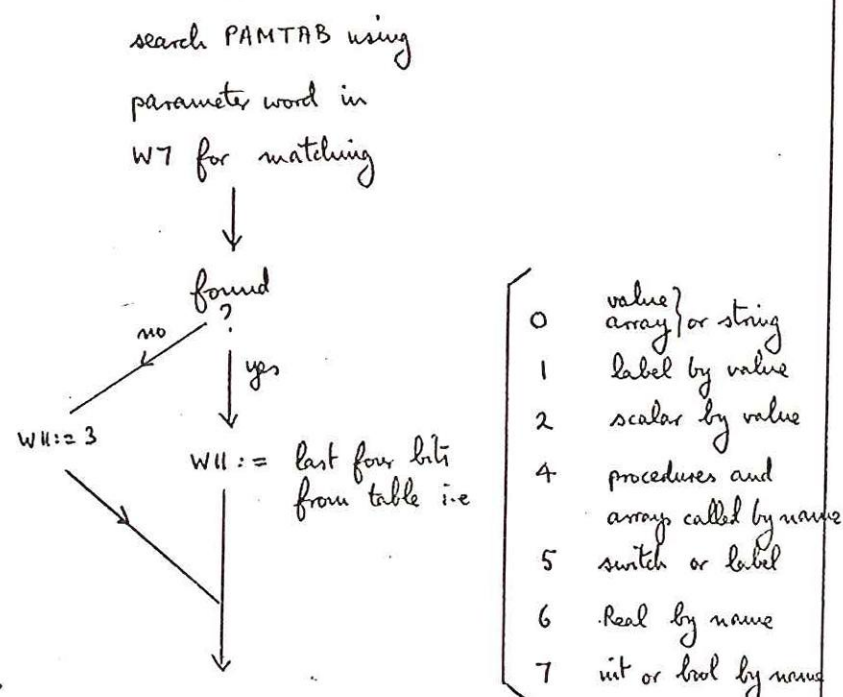 search PAMTAB using
parameter word in
W7 for matching
found
?
no
yes
W11:= 3
W11:= last four bits
from table i.e
0 value
array } or string
1 label by value
2 scalar by value
4 procedures and
arrays called by name
5 switch or label
6 Real by name
7 int or bool by name